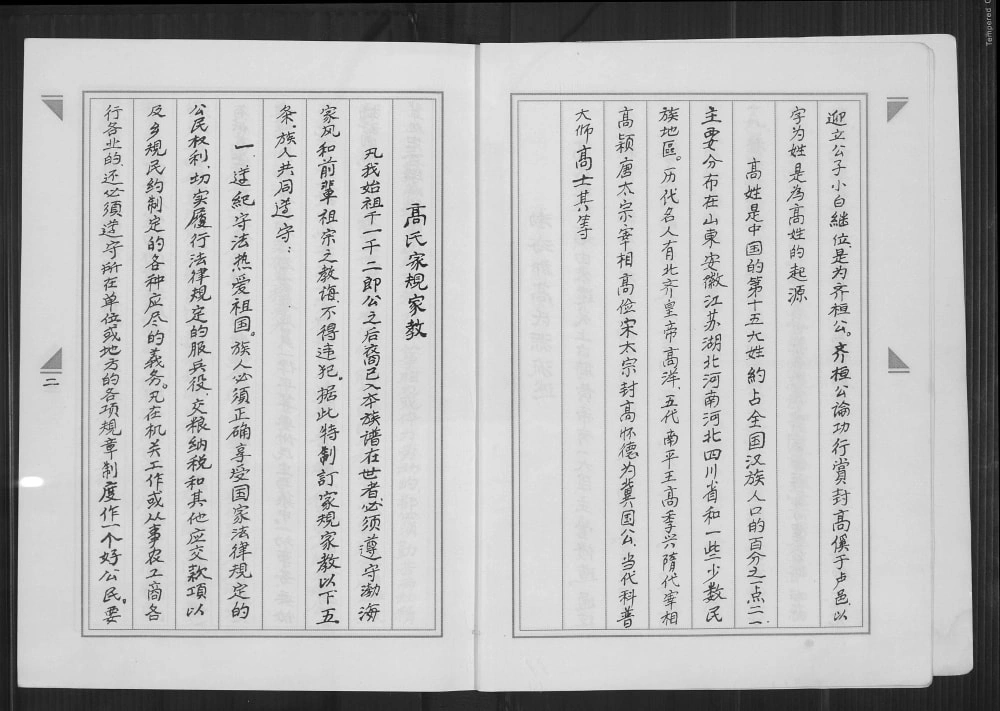 迎立公子小白继位是为齐桓公。齐桓公論功行賞封高傒于卢邑,以
字为姓是為高姓的起源
高姓是中国的第十五大姓约占全国汉族人口的百分之一点二一
主要分布在山東安徽江苏湖北河南河北四川省和一些少数民
族地區。历代名人有北齐皇帝高洋、五代南平王高季兴隋代宰相
高颖唐太宗宰相高俭宋太宗封高怀德为冀国公、当代科普
大师高士其等
高氏家規家教
凡我始祖千一千二郎公之后裔已入本族谱在世者必须遵守渤海
家风和前輩祖宗之教诲、不得违犯。据此特制訂家規家教以下五
条、族人共同遵守:
一、遵紀守法热爱祖国。族人必须正确享受国家法律規定的
公民权利、切实履行法律規定的服兵役、交粮纳税和其他应交款項以
及乡規民約制定的各种应尽的義务。凡在机关工作或从事农工商各
行各业的、还必须遵守所在单位或地方的各项規章制度作一个好公民。要
二
Tempered